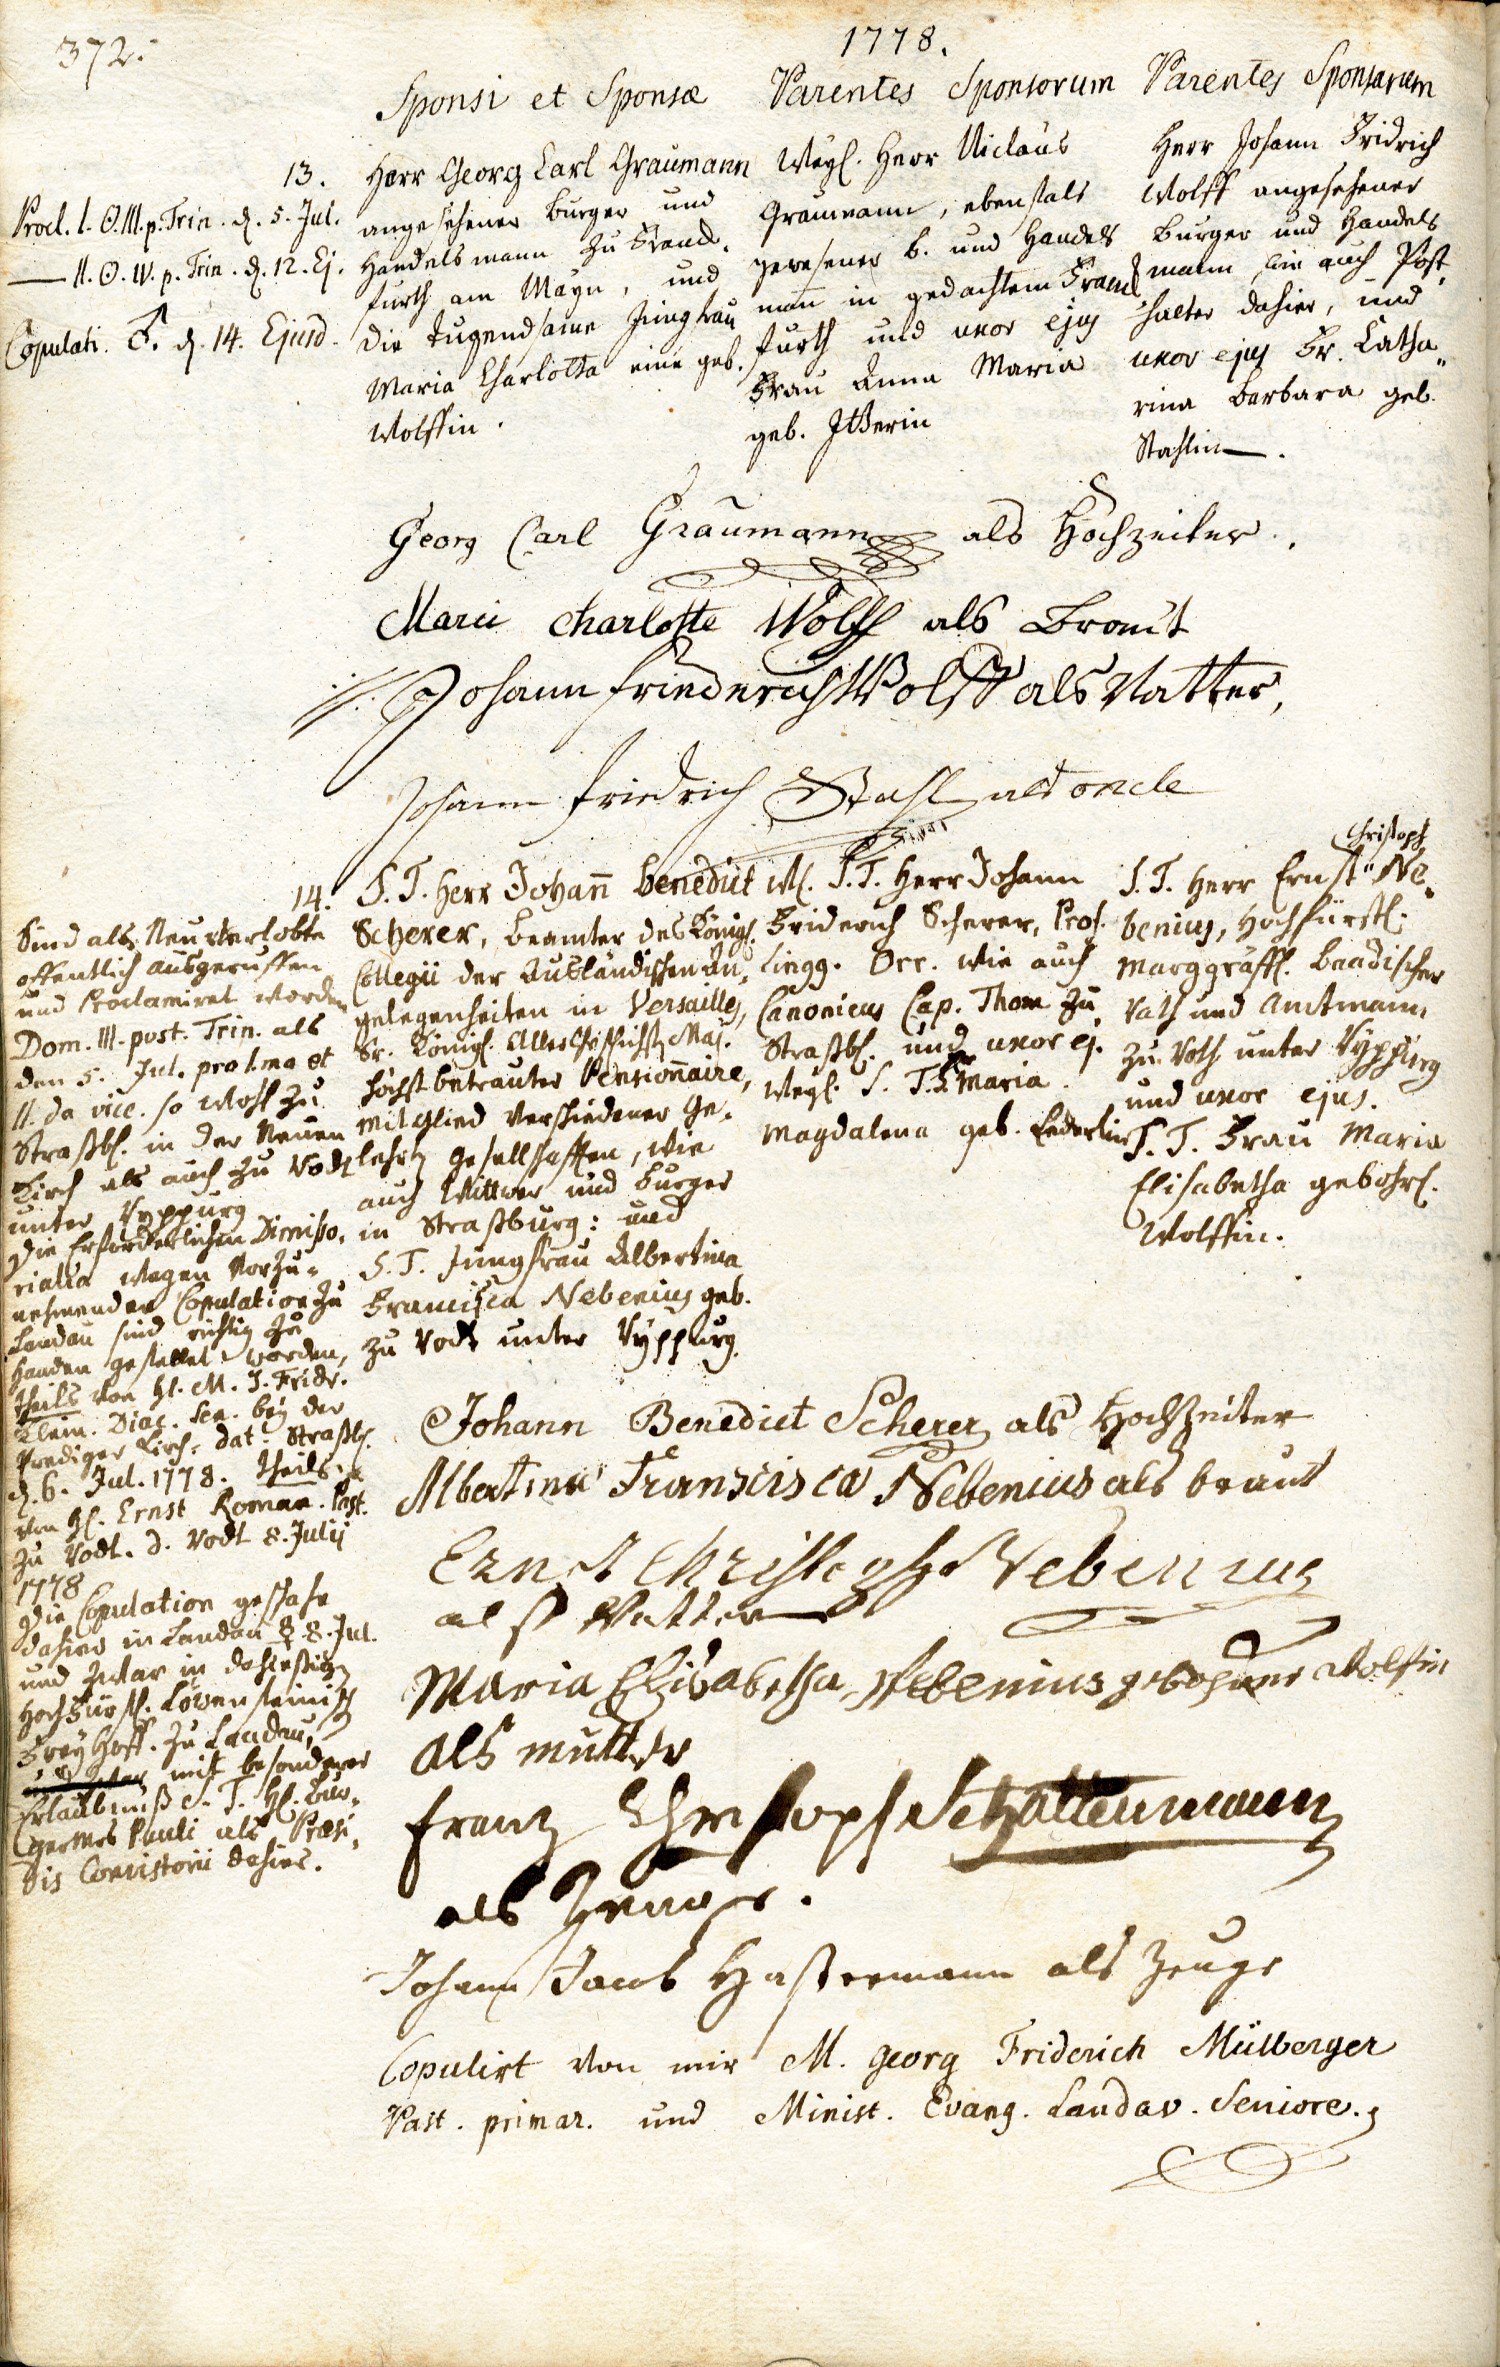 372.
1778.
Sponsi et Sponsæ
Parentes Sponsorum
Parentes Sponsarum
13.
Procl. I. O. III. p. Trin. d. 5. Jul.
— II. O. IV. p. Trin. d. 12. Ej.
Copulati. ♂. d. 14. Ejusd.
Herr Georg Carl Graumann
angesehener Burger und
Handelsmann zu Franck-
furth am Mayn, und
die tugendsame Jungfrau
Maria Charlotta eine geb.
Wolffin.
Weyl. Herr Niclaus
Graumann, ebenfals
gewesener b. und Handels
man in gedachtem Franck
furth und uxor ejus
Frau Anna Maria
geb. Itzerin
Herr Johann Fridrich
Wolff angesehener
Burger und Handels
mann, wie auch Post-
halter dahier, und
uxor ejus Fr. Catha-
rina Barbara geb.
Stahlin.
Georg Carl Graumann als Hochzeiter.
Marie Charlotte Wolff als Braut
Johann Friederich Wolff als Vatter,
Johann Friedrich Stahl als oncle
14.
Sind als Neuverlobte
offentlich ausgeruffen
und Proclamiret worden
Dom. III. post. Trin. als
den 5. Jul. pro I.ma et
II.da vice. so wohl zu
Straßb. in der Neuen
Kirch als auch zu Rodt
unter Ryppurg
Die Erforderlichen Dimisso-
rialia wegen Vorzu-
nehmender Copulation zu
Landau sind richtig zu
Handen gestellet worden,
theils von H. M. J. Fridr.
Klein. Diac. Sen. bey der
Prediger Kirch. dat. Straßb.
d. 6. Jul. 1778. theils
von H. Ernst Roman. Past.
zu Rodt. d. Rodt 8. Julij
1778
Die Copulation geschahe
dahier in Landau ☿ 8. Jul.
und zwar in dasigem
Hochfürstl. Löwensteinisch
Freyhoff. zu Landau,
und zwar mit besonderer
Erlaubnuß S. T. H. Bur-
germrs Pauli als Præsi-
dis Consistorii dahier.
S. T. Herr Johann Benedict
Scherer, Beamter des Königl.
Collegii der Ausländischen An-
gelegenheiten in Versailles,
Sr. Königl. Allerchristlichst. Maj.
höchst betrauter Pensionnaire,
Mitglied verschiedener Ge-
lehrten Gesellschafften, wie
auch Wittwer und Burger
in Straßburg: und
S. T. Jungfrau Albertina
Francisca Nebenius geb.
zu Rodt unter Ryppurg.
Wl. S. T. Herr Johann
Friderich Scherer, Prof.
Lingg. Orr. wie auch
Canonicus Cap. Thom zu
Straßb. und uxor ej.
Weyl. S. T. Fr Maria
Magdalena geb. Lederlin
S. T. Herr Ernst Christoph Ne-
benius, Hochfürstl.
Marggräffl. Baadischer
Rath und Amtmann
zu Roth unter Ryppurg
und uxor ejus.
S. T. Frau Maria
Elisabetha gebohrl.
Wolffin.
Johann Benedict Scherer als Hochzeiter
Albertina Francisca Nebenius als braut
Ernst Christoph Nebenius
als Vatter
Maria Elisabetha Nebenius gebohrne Wolffin
als mutter
Frantz Christoph Schattenmann
als Zeuge.
Johann Jacob Hastermann als Zeuge
Copulirt von mir M. Georg Friderich Mülberger
Past. primar. und Minist. Evang. Landav. Seniore.